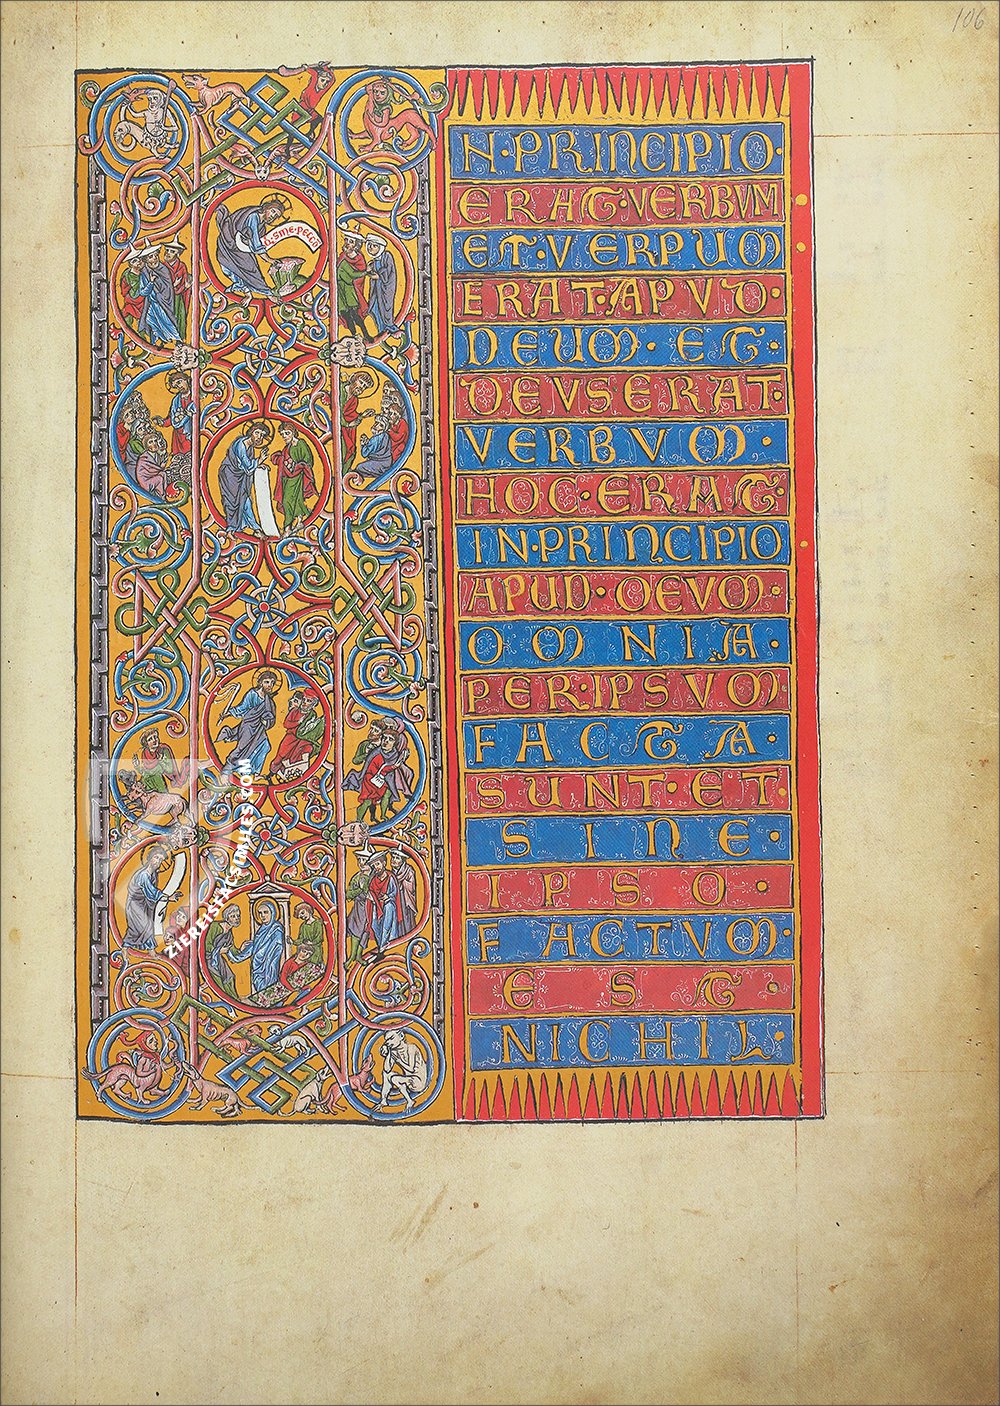 106
N·PRINCIPIO·
ERAT·VERBVM
ET·VERPUM
ERAT·APVD·
DEUM·ET·
DEVSERAT·
VERBVM·
HOC·ERAT·
IN·PRINCIPIO
APUD·DEVM·
OMNIA·
PER·IPSVM·
FACTA·
SUNT·ET
SINE
IPSO·
FACTVM·
EST·
NICHIL·
ZIEREIS FACSIMILES.COM